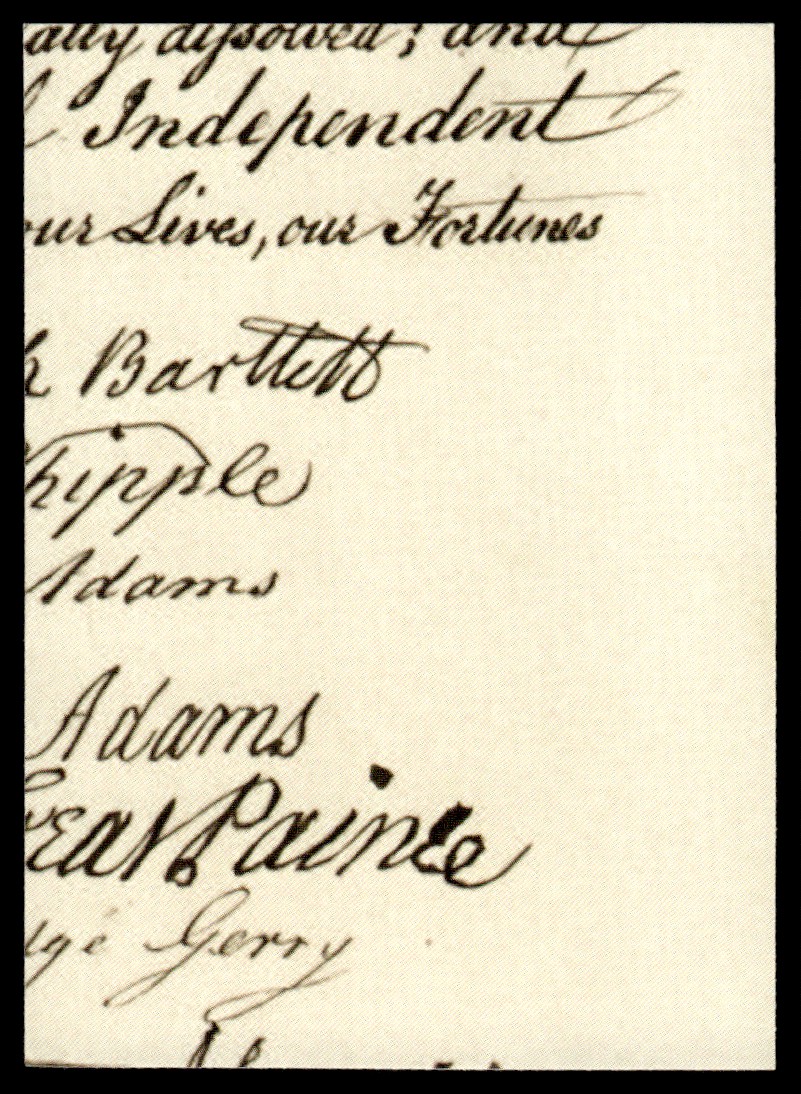 ally dissolved; and
Independent
our Lives, our Fortunes
h Bartlett
hipple
Adams
Adams
reat Paine
dge Gerry